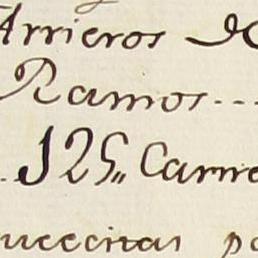 Arrieros de
Ramos...
125,, Carre
uecitas po